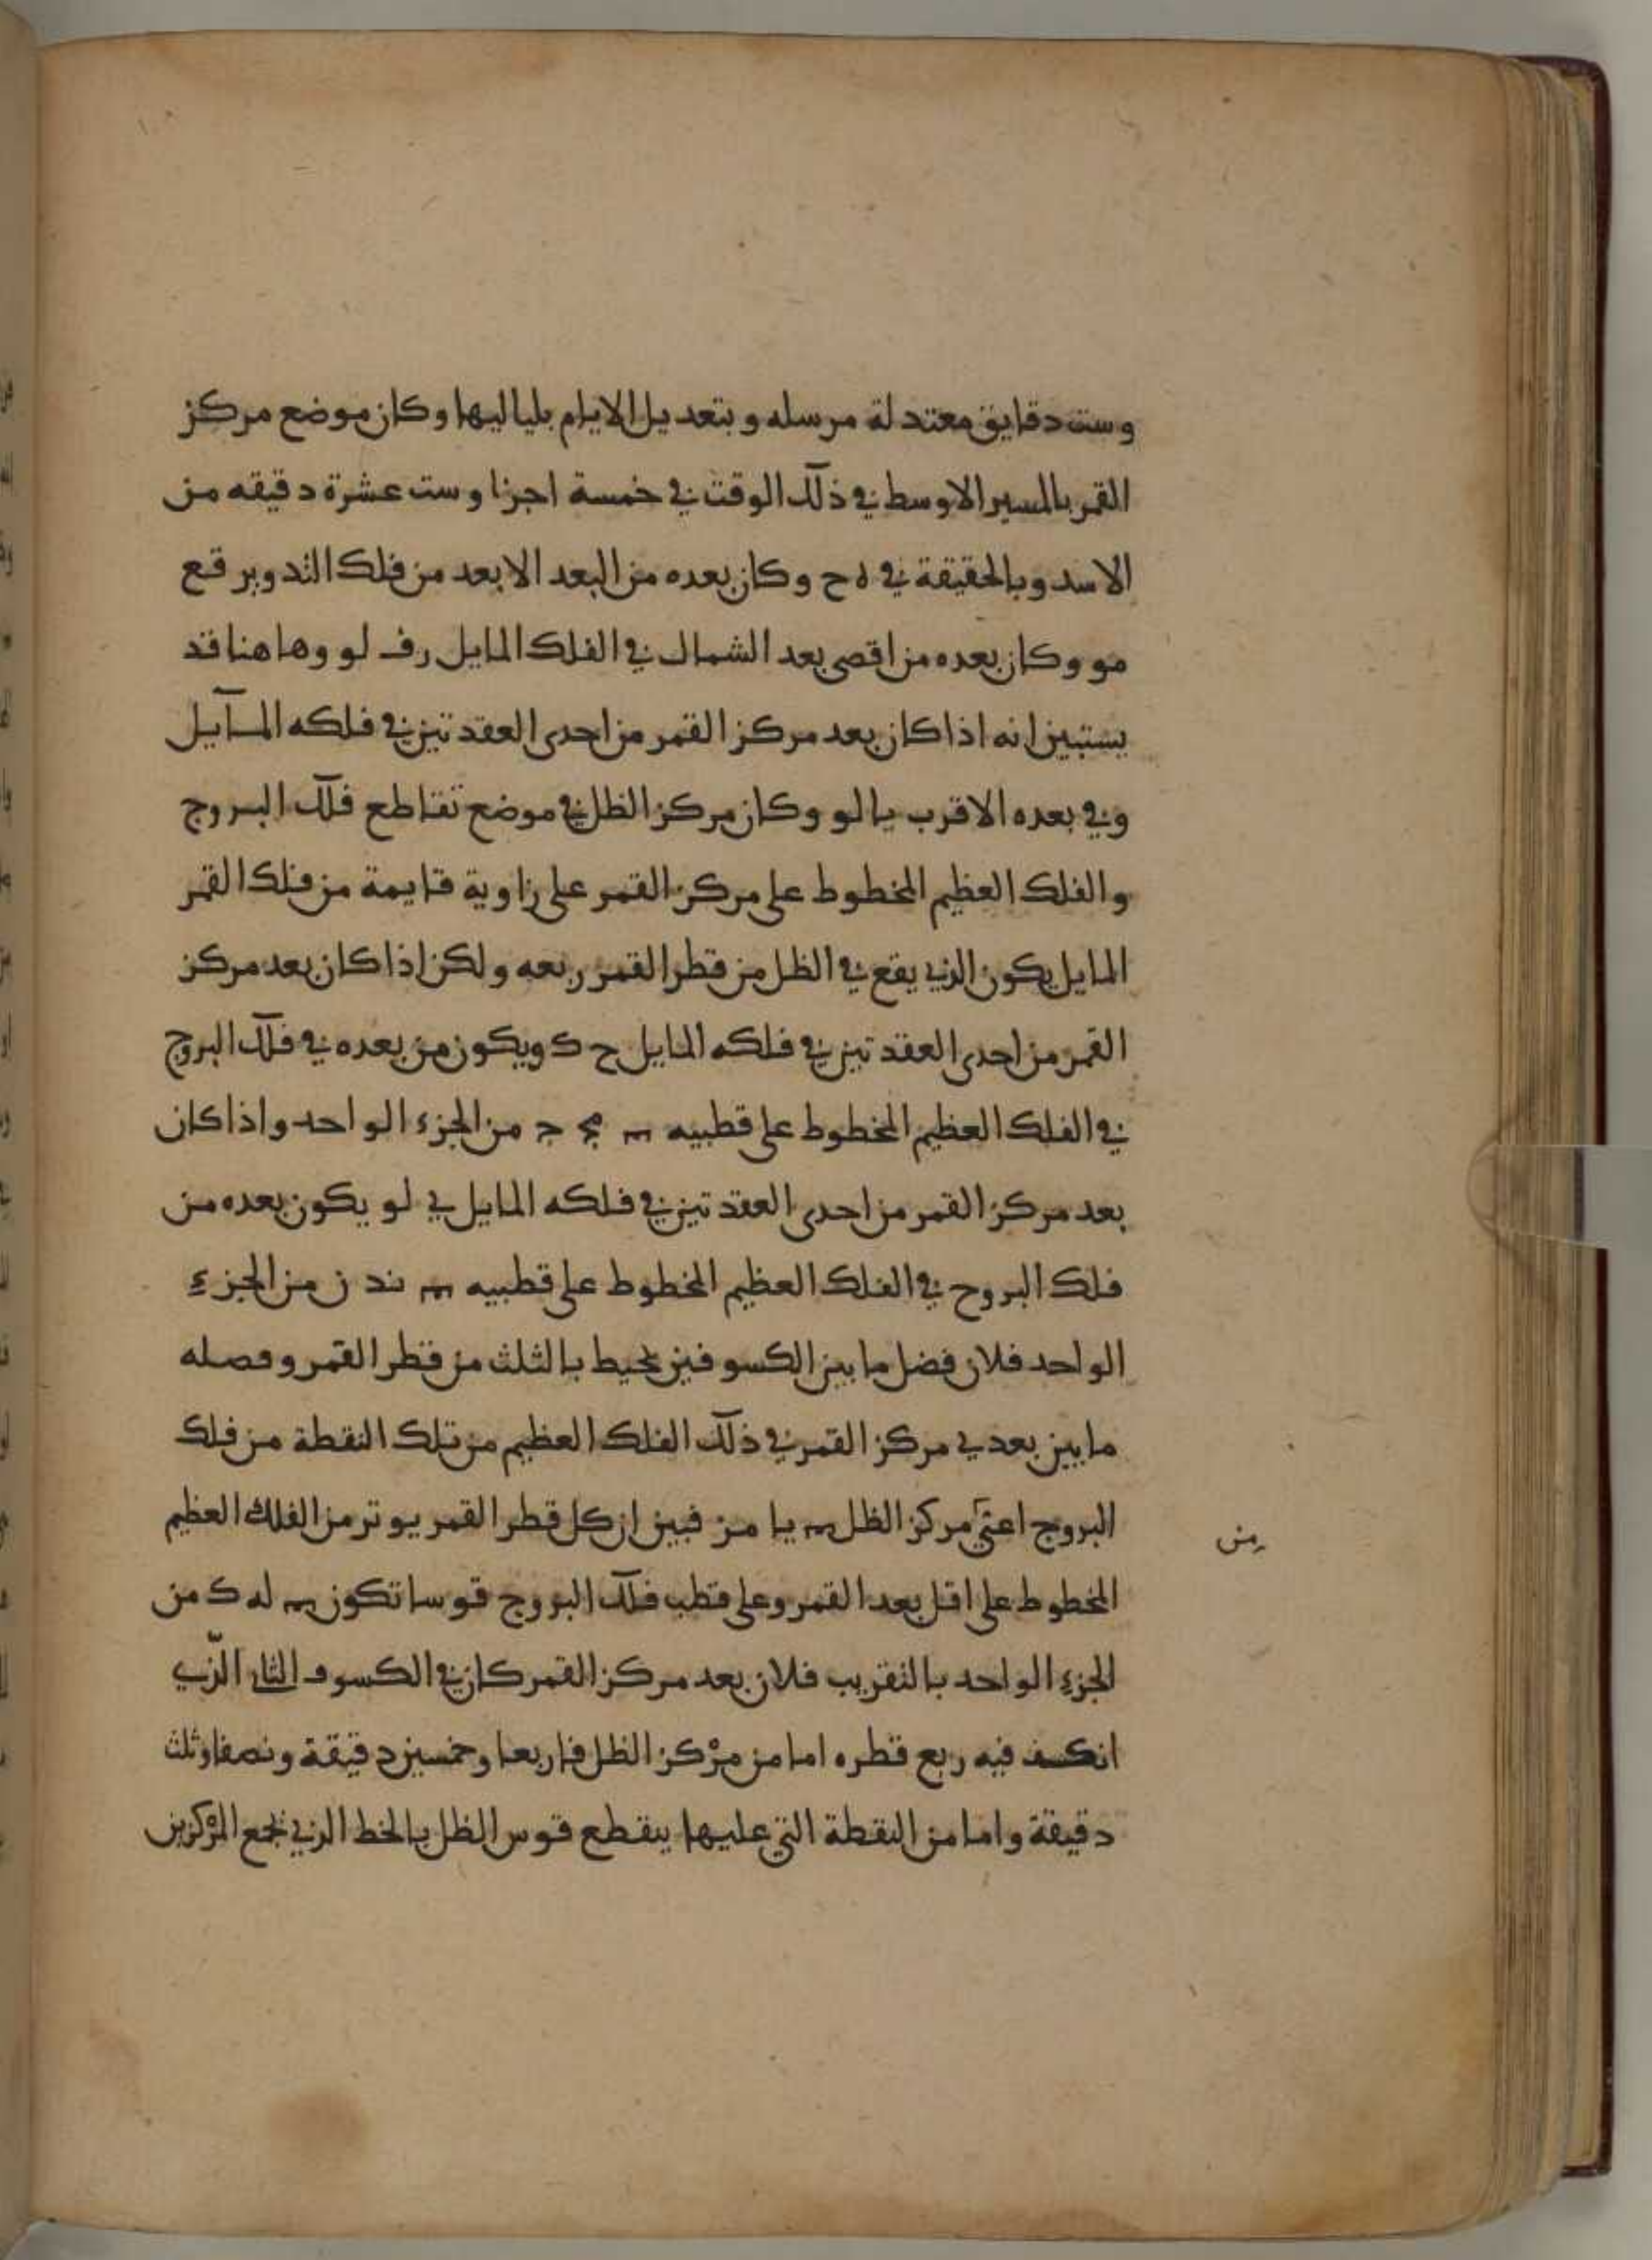 وست دقايق معتدلة مرسله وبتعديل الايام بلياليها وكان موضع مركز
القمر بالمسير الاوسط في ذلك الوقت في خمسة اجزا وست عشرة دقيقه من
الاسد وبالحقيقة في ه ح وكان بعده من البعد الابعد من فلك التدوير قع
مو وكان بعده من اقصى بعد الشمال في الفلك المايل رف لو وهاهنا قد
يستبين انه اذا كان بعد مركز القمر من احدى العقدتين في فلكه المآيل
وفي بعده الاقرب يا لو وكان مركز الظل في موضع تقاطع فلك البروج
والفلك العظيم المخطوط على مركز القمر على زاوية قايمة من فلك القمر
المايل يكون الذي يقع في الظل من قطر القمر ربعه ولكن اذا كان بعد مركز
القمر من احدى العقدتين في فلكه المايل ح ك ويكون من بعده في فلك البروج
في الفلك العظيم المخطوط على قطبيه مج ج من الجزء الواحد واذا كان
بعد مركز القمر من احدى العقدتين في فلكه المايل ي لو يكون بعده من
فلك البروح في الفلك العظيم المخطوط على قطبيه ند ن من الجزء
الواحد فلان فضل ما بين الكسوفين يحيط بالثلث من قطر القمر وفصله
ما بين بعدي مركز القمر في ذلك الفلك العظيم من تلك النقطة من فلك
البروج اعني مركز الظل يا مز فبين ان كل قطر القمر يوتر من الفلك العظيم
من
المخطوط على اقل بعد القمر وعلى قطب فلك البروج قوسا تكون له ك من
الجزء الواحد بالتقريب فلان بعد مركز القمر كان في الكسوف الثاني الذي
انكسف فيه ربع قطره اما من مركز الظل فاربعا وخمسين دقيقة ونصفا وثلث
دقيقة واما من النقطة التي عليها ينقطع قوس الظل بالخط الذي يجمع المركزين